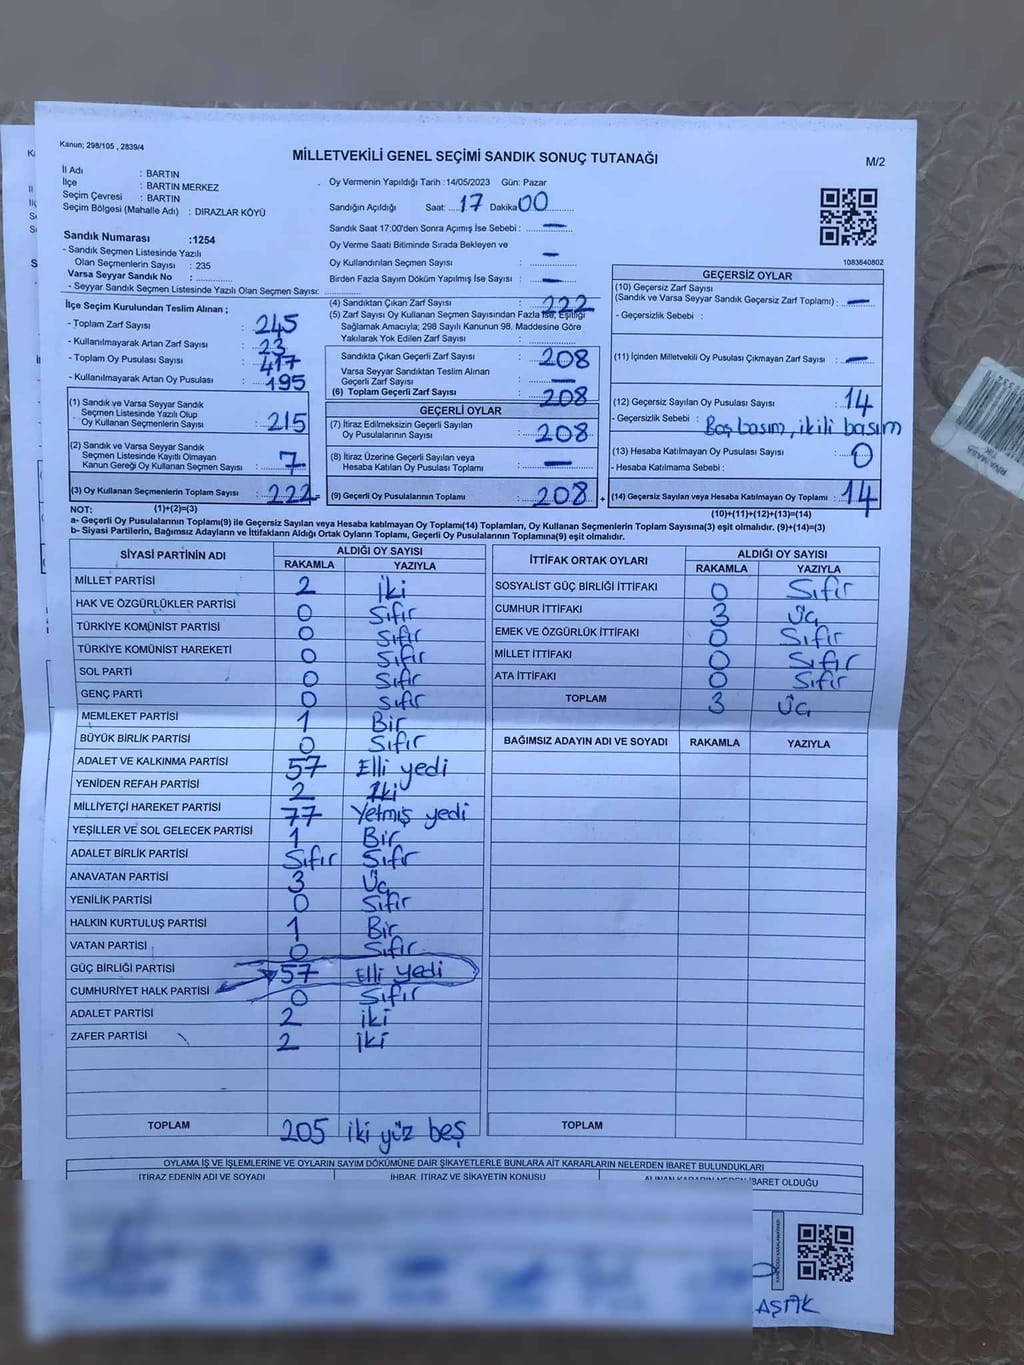 Kanun; 298/105 , 2839/4
MİLLETVEKİLİ GENEL SEÇİMİ SANDIK SONUÇ TUTANAĞI
M/2
İl Adı : BARTIN
İlçe : BARTIN MERKEZ
Seçim Çevresi : BARTIN
Seçim Bölgesi (Mahalle Adı) : DIRAZLAR KÖYÜ
Sandık Numarası :1254
- Sandık Seçmen Listesinde Yazılı
Olan Seçmenlerin Sayısı : 235
Varsa Seyyar Sandık No :
- Seyyar Sandık Seçmen Listesinde Yazılı Olan Seçmen Sayısı:
İlçe Seçim Kurulundan Teslim Alınan ;
- Toplam Zarf Sayısı : 245
- Kullanılmayarak Artan Zarf Sayısı : 23
- Toplam Oy Pusulası Sayısı : 417
- Kullanılmayarak Artan Oy Pusulası : 195
(1) Sandık ve Varsa Seyyar Sandık
Seçmen Listesinde Yazılı Olup
Oy Kullanan Seçmenlerin Sayısı : 215
(2) Sandık ve Varsa Seyyar Sandık
Seçmen Listesinde Kayıtlı Olmayan
Kanun Gereği Oy Kullanan Seçmen Sayısı : 7
(3) Oy Kullanan Seçmenlerin Toplam Sayısı : 222
Oy Vermenin Yapıldığı Tarih :14/05/2023 Gün: Pazar
Sandığın Açıldığı Saat: 17 Dakika 00
Sandık Saat 17:00'den Sonra Açımış İse Sebebi : —
Oy Verme Saati Bitiminde Sırada Bekleyen ve
Oy Kullandırılan Seçmen Sayısı : —
Birden Fazla Sayım Döküm Yapılmış İse Sayısı : —
(4) Sandıktan Çıkan Zarf Sayısı : 222
(5) Zarf Sayısı Oy Kullanan Seçmen Sayısından Fazla ise, Eşitliği
Sağlamak Amacıyla; 298 Sayılı Kanunun 98. Maddesine Göre
Yakılarak Yok Edilen Zarf Sayısı :
Sandıkta Çıkan Geçerli Zarf Sayısı : 208
Varsa Seyyar Sandıktan Teslim Alınan
Geçerli Zarf Sayısı : —
(6) Toplam Geçerli Zarf Sayısı : 208
GEÇERLİ OYLAR
(7) İtiraz Edilmeksizin Geçerli Sayılan
Oy Pusulalarının Sayısı : 208
(8) İtiraz Üzerine Geçerli Sayılan veya
Hesaba Katılan Oy Pusulası Toplamı : —
(9) Geçerli Oy Pusulalarının Toplamı : 208
1083640802
GEÇERSİZ OYLAR
(10) Geçersiz Zarf Sayısı
(Sandık ve Varsa Seyyar Sandık Geçersiz Zarf Toplamı) : —
- Geçersizlik Sebebi :
(11) İçinden Milletvekili Oy Pusulası Çıkmayan Zarf Sayısı : —
(12) Geçersiz Sayılan Oy Pusulası Sayısı : 14
- Geçersizlik Sebebi : Boş basım, ikili basım
(13) Hesaba Katılmayan Oy Pusulası Sayısı : 0
- Hesaba Katılmama Sebebi :
+ (14) Geçersiz Sayılan veya Hesaba Katılmayan Oy Toplamı : 14
NOT: (1)+(2)=(3)
(10)+(11)+(12)+(13)=(14)
a- Geçerli Oy Pusulalarının Toplamı(9) ile Geçersiz Sayılan veya Hesaba katılmayan Oy Toplamı(14) Toplamları, Oy Kullanan Seçmenlerin Toplam Sayısına(3) eşit olmalıdır. (9)+(14)=(3)
b- Siyasi Partilerin, Bağımsız Adayların ve İttifakların Aldığı Ortak Oyların Toplamı, Geçerli Oy Pusulalarının Toplamına(9) eşit olmalıdır.
SİYASİ PARTİNİN ADI ALDIĞI OY SAYISI
RAKAMLA YAZIYLA
MİLLET PARTİSİ 2 iki
HAK VE ÖZGÜRLÜKLER PARTİSİ 0 Sıfır
TÜRKİYE KOMÜNİST PARTİSİ 0 Sıfır
TÜRKİYE KOMÜNİST HAREKETİ 0 Sıfır
SOL PARTİ 0 Sıfır
GENÇ PARTİ 0 Sıfır
MEMLEKET PARTİSİ 1 Bir
BÜYÜK BİRLİK PARTİSİ 0 Sıfır
ADALET VE KALKINMA PARTİSİ 57 Elli yedi
YENİDEN REFAH PARTİSİ 2 İki
MİLLİYETÇİ HAREKET PARTİSİ 77 Yetmiş yedi
YEŞİLLER VE SOL GELECEK PARTİSİ 1 Bir
ADALET BİRLİK PARTİSİ Sıfır Sıfır
ANAVATAN PARTİSİ 3 Üç
YENİLİK PARTİSİ 0 Sıfır
HALKIN KURTULUŞ PARTİSİ 1 Bir
VATAN PARTİSİ 0 Sıfır
GÜÇ BİRLİĞİ PARTİSİ 57 Elli yedi
CUMHURİYET HALK PARTİSİ 0 Sıfır
ADALET PARTİSİ 2 iki
ZAFER PARTİSİ 2 iki
TOPLAM 205 iki yüz beş
İTTİFAK ORTAK OYLARI ALDIĞI OY SAYISI
RAKAMLA YAZIYLA
SOSYALİST GÜÇ BİRLİĞİ İTTİFAKI 0 Sıfır
CUMHUR İTTİFAKI 3 Üç
EMEK VE ÖZGÜRLÜK İTTİFAKI 0 Sıfır
MİLLET İTTİFAKI 0 Sıfır
ATA İTTİFAKI 0 Sıfır
TOPLAM 3 Üç
BAĞIMSIZ ADAYIN ADI VE SOYADI RAKAMLA YAZIYLA
TOPLAM
OYLAMA İŞ VE İŞLEMLERİNE VE OYLARIN SAYIM DÖKÜMÜNE DAİR ŞİKAYETLERLE BUNLARA AİT KARARLARIN NELERDEN İBARET BULUNDUKLARI
İTİRAZ EDENİN ADI VE SOYADI İHBAR, İTİRAZ VE ŞİKAYETİN KONUSU ALINAN KARARIN NEDEN İBARET OLDUĞU